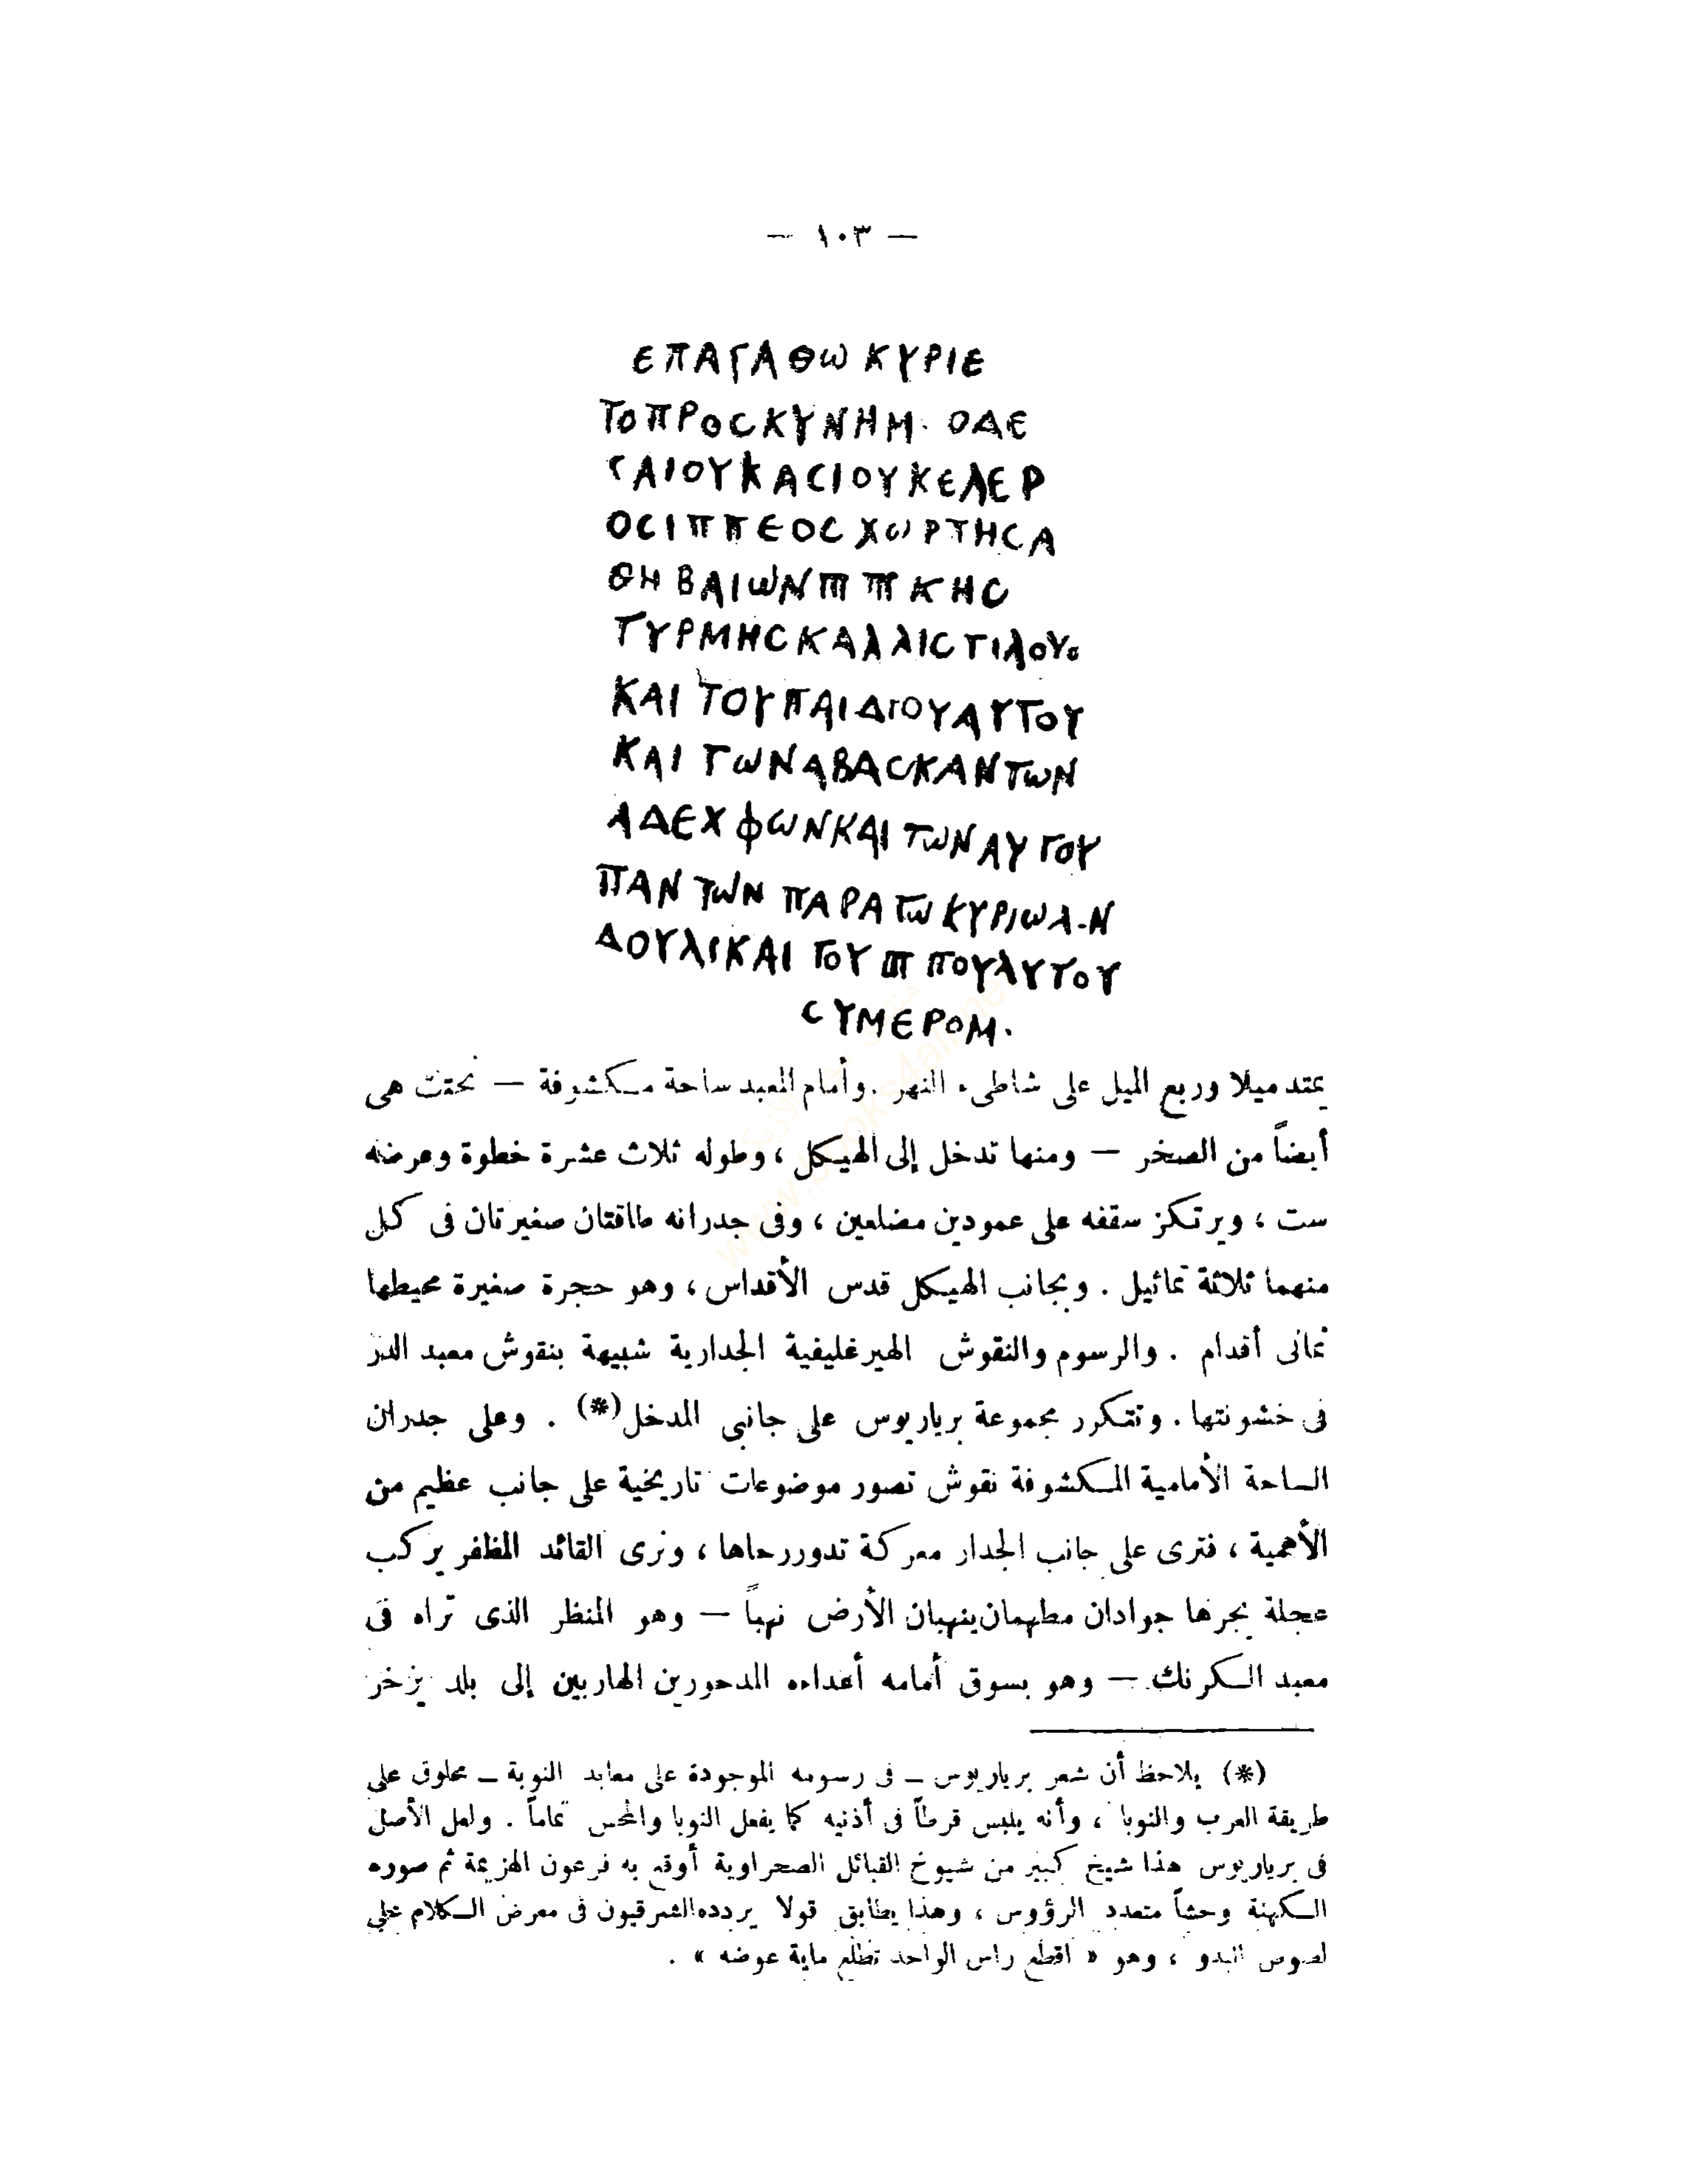 — ١٠٣ —
ΕΠΑΓΑΘΩ ΚΥΡΙΕ
ΤΟΠΡΟCΚΥΝΗΜ. ΟΔΕ
ΓΑΙΟΥΚΑCΙΟΥΚΕΛΕΡ
ΟCΙΠΠΕΟC ΧΩΡΤΗCΑ
ΘΗΒΑΙΩΝΠΠΚΗC
ΤΥΡΜΗCΚΑΛΛΙCΤΙΛΟΥΟ
ΚΑΙ ΤΟΥΠΑΙΔΙΟΥΑΥΤΟΥ
ΚΑΙ ΤΩΝΑΒΑCΚΑΝΤΩΝ
ΑΔΕΧΦΩΝΚΑΙ ΤΩΝΑΥΤΟΥ
ΠΑΝΤΩΝ ΠΑΡΑΤΩΚΥΡΙΩΑ-Ν
ΔΟΥΛΙΚΑΙ ΤΟΥ ΠΠΟΥΑΥΤΟΥ
CΥΜΕΡΟΜ.
يمتد ميلا وربع الميل على شاطىء النهر . وأمام المعبد ساحة مكشوفة — نحتت هى
أيضاً من الصخر — ومنها تدخل إلى الهيكل ، وطوله ثلاث عشرة خطوة وعرضه
ست ، ويرتكز سقفه على عمودين مضلعين ، وفى جدرانه طاقتان صغيرتان فى كل
منهما ثلاثة تماثيل . وبجانب الهيكل قدس الأقداس ، وهو حجرة صغيرة محيطها
ثمانى أقدام . والرسوم والنقوش الهيرغليفية الجدارية شبيهة بنقوش معبد الدر
فى خشونتها . وتتكرر مجموعة برياريوس على جانبى المدخل (*) . وعلى جدران
الساحة الأمامية المكشوفة نقوش تصور موضوعات تاريخية على جانب عظيم من
الأهمية ، فترى على جانب الجدار معركة تدور رحاها ، ونرى القائد المظفر يركب
عجلة يجرها جوادان مطهمان ينهبان الأرض نهباً — وهو المنظر الذى تراه فى
معبد الكرنك — وهو يسوق أمامه أعداءه المدحورين الهاربين إلى بلد يزخر
(*) يلاحظ أن شعر برياريوس — فى رسومه الموجودة على معابد النوبة — محلوق على
طريقة العرب والنوبا ، وأنه يلبس قرطاً فى أذنيه كما يفعل النوبا والمحس تماماً . ولعل الأصل
فى برياريوس هذا شيخ كبير من شيوخ القبائل الصحراوية أوقع به فرعون الهزيمة ثم صوره
الكهنة وحشاً متعدد الرؤوس ، وهذا يطابق قولا يردده الشرقيون فى معرض الكلام على
لصوص البدو ، وهو « اقطع راس الواحد تطلع ماية عوضه » .